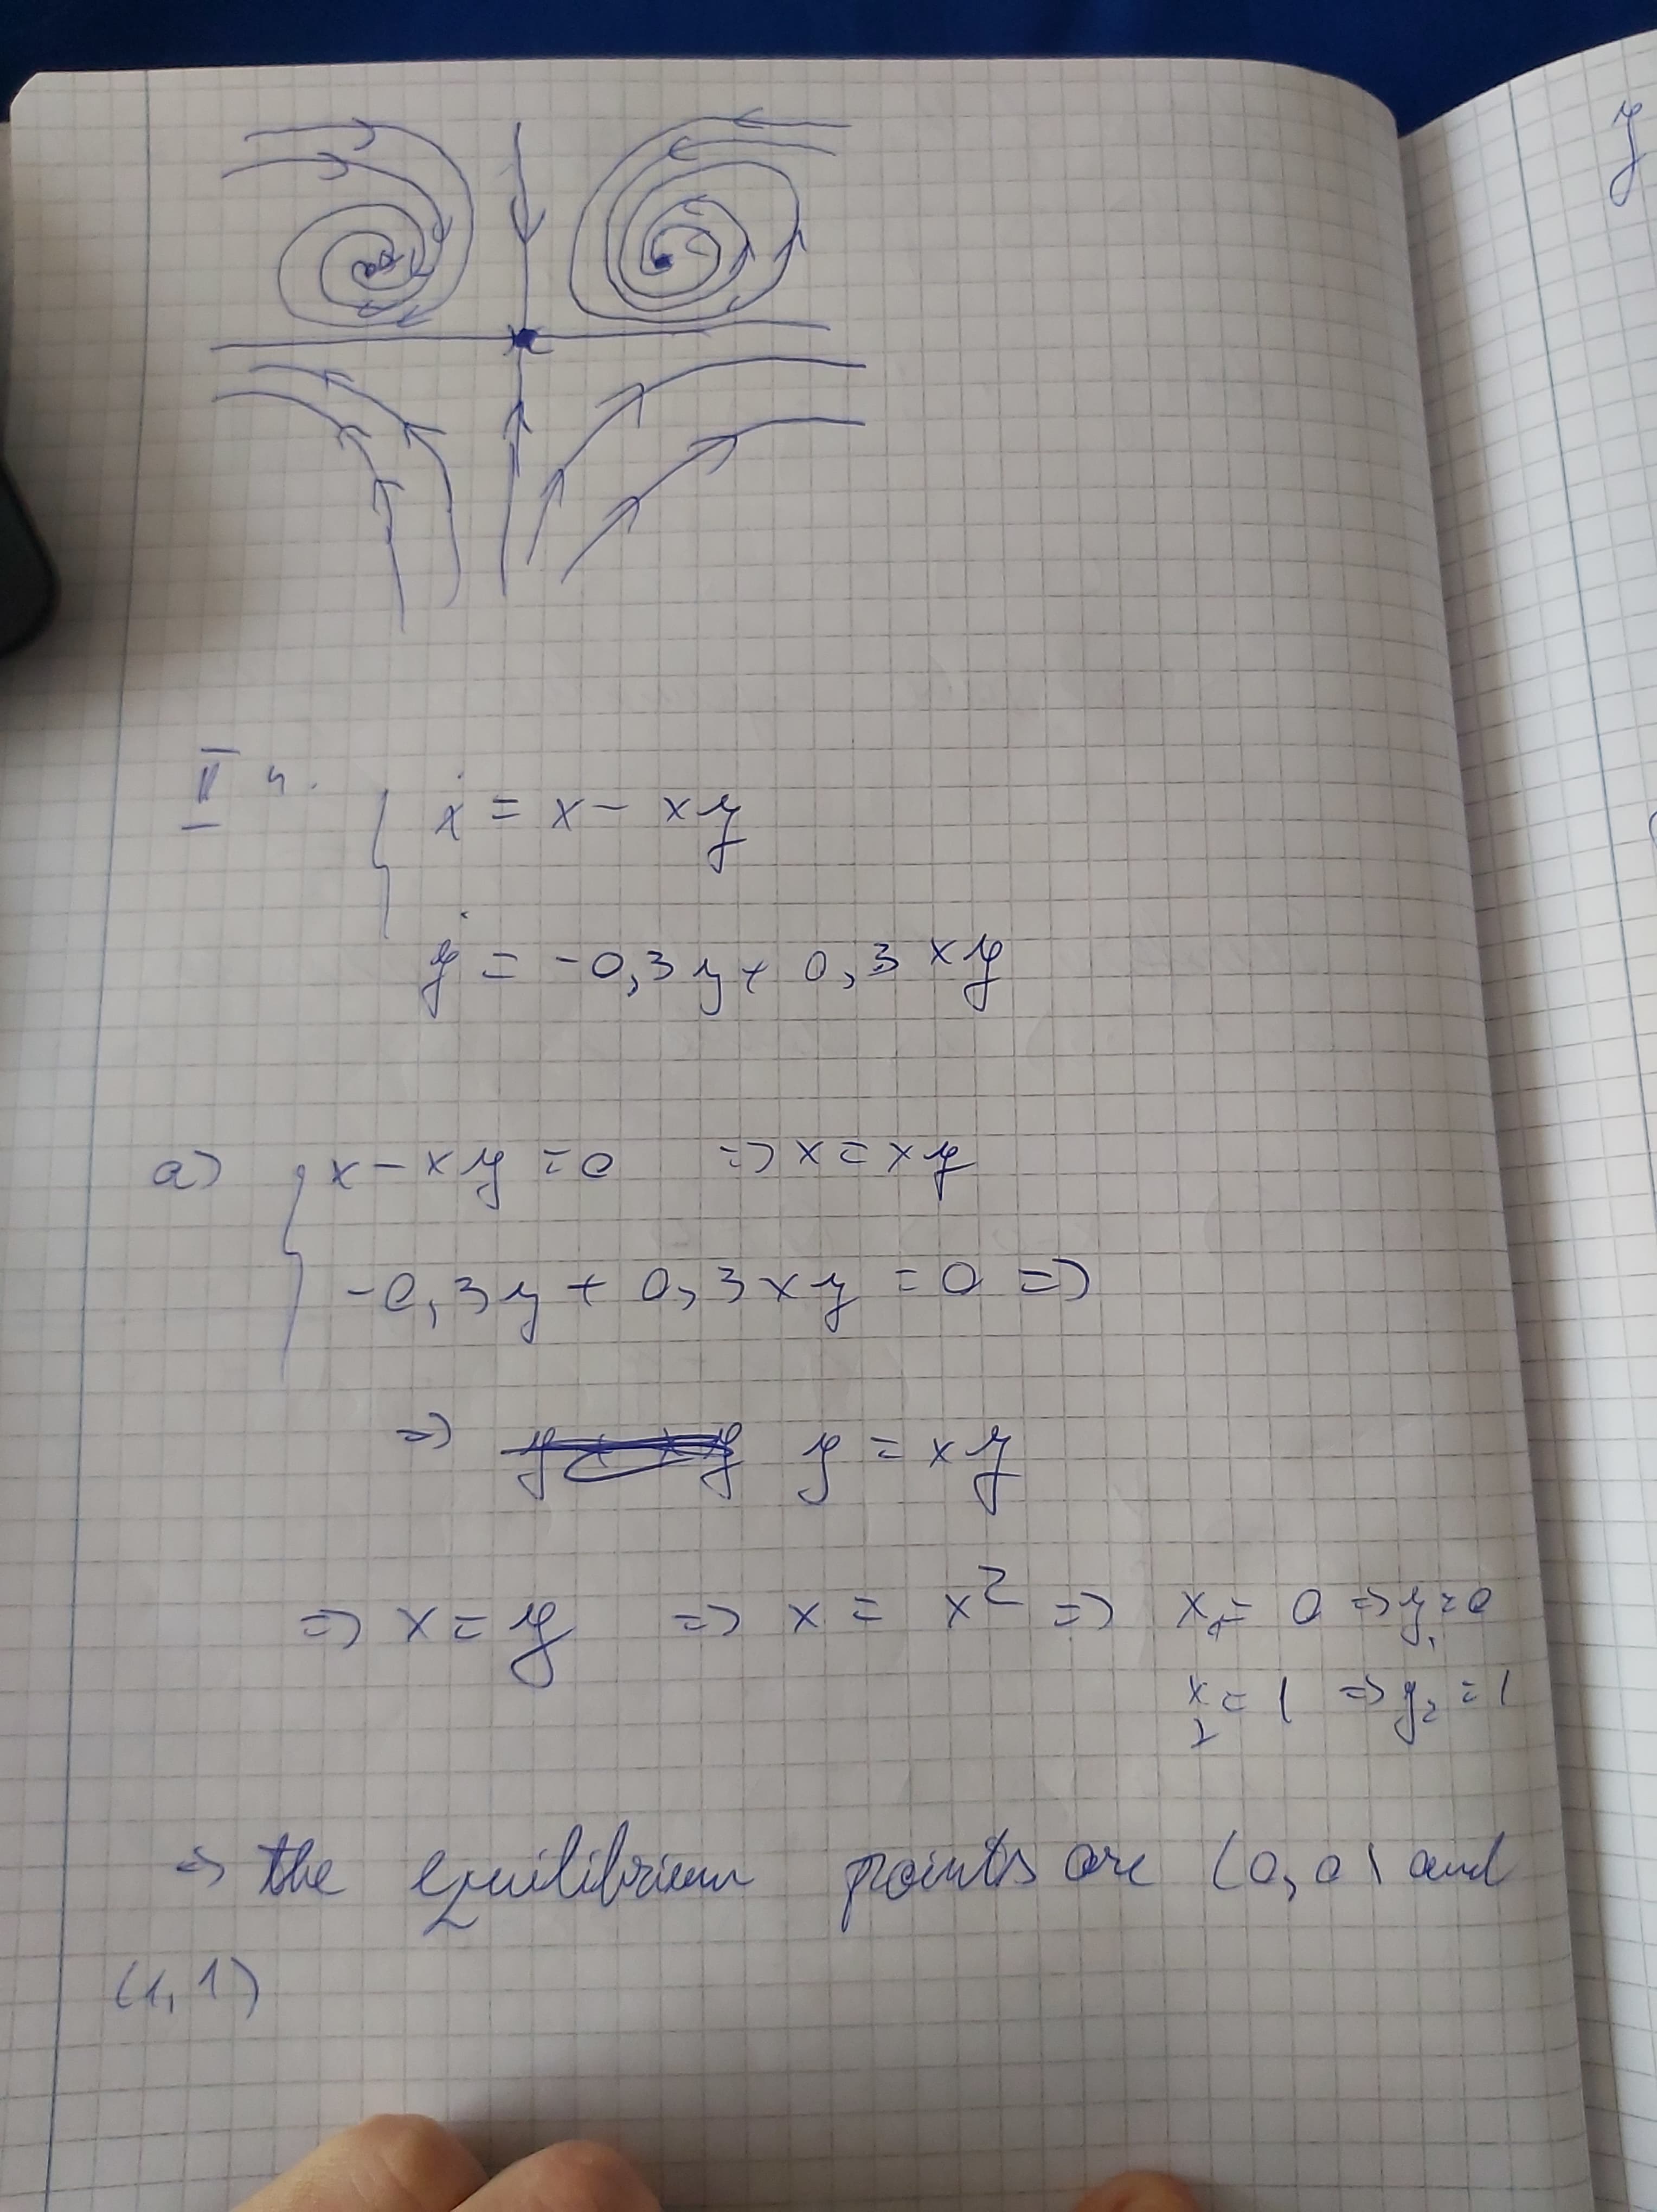 y
II 4. { ẋ = x - xy
ẏ = -0,3y + 0,3xy
a) { x - xy = 0 => x = xy
-0,3y + 0,3xy = 0 =>
=> y = xy
=> x = y => x = x² => x₁ = 0 => y₁ = 0
x₂ = 1 => y₂ = 1
=> the equilibrium points are (0,0) and
(1,1)